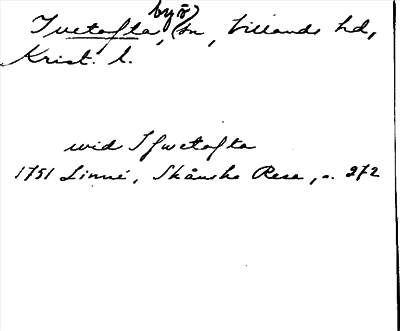 by o)
Ivetofta, (sn, Villands hd,
Krist. l.
wid Ifwetofta
1751 Linné, Skånska Resa, s. 272